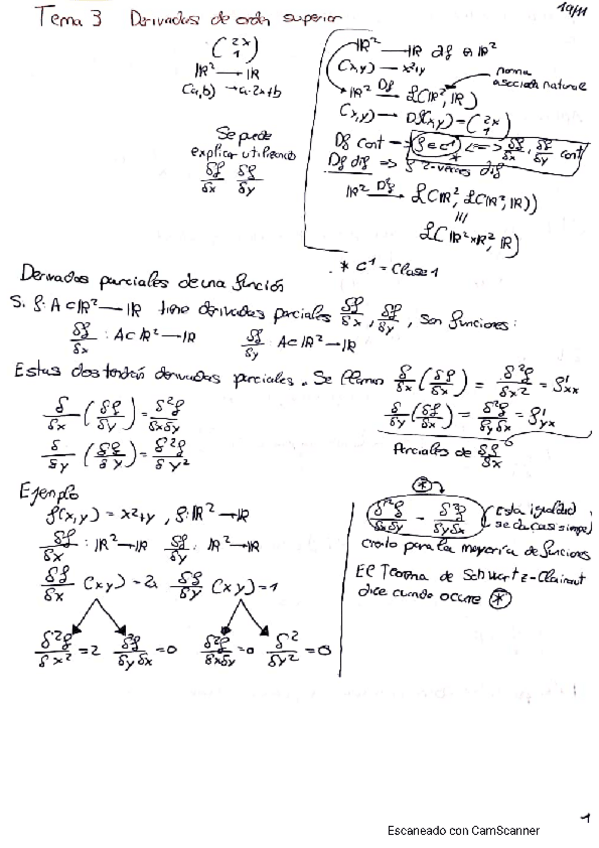 19/11
Tema 3 Derivadas de orden superior
(2x 1)
IR² → IR
(a,b) → a·2x+b
Se puede
explicar utilizando
δf/δx δf/δy
IR² → IR df en IR²
(x,y) → x²+y
norma
asociada natural
IR² Df→ L(IR², IR)
(x,y) → Df(x,y) = (2x 1)
Df cont → f ∈ C¹ <=> δf/δx, δf/δy cont
*
Df dif => f 2-veces dif
IR² D²f→ L(IR², L(IR², IR))
L(IR²×IR², IR)
* C¹ = Clase 1
Derivadas parciales de una función
Si f: A⊂IR² → IR tiene derivadas parciales δf/δx, δf/δy, son funciones:
δf/δx : A⊂IR² → IR δf/δy : A⊂IR² → IR
Estas dos tendrán derivadas parciales. Se llaman δ/δx (δf/δx) = δ²f/δx² = f'xx
δ/δy (δf/δx) = δ²f/δyδx = f'yx
Parciales de δf/δx
δ/δx (δf/δy) = δ²f/δxδy
δ/δy (δf/δy) = δ²f/δy²
Ejemplo
f(x,y) = x²+y, f: IR² → IR
δf/δx : IR² → IR δf/δy : IR² → IR
δf/δx (x,y) = 2x δf/δy (x,y) = 1
δ²f/δx² = 2 δ²f/δyδx = 0 δ²f/δxδy = 0 δ²/δy² = 0
*
δ²f/δxδy = δ²f/δyδx (esta igualdad
se da casi siempre)
cierto para la mayoría de funciones
El Teorema de Schwartz-Clairaut
dice cuando ocurre *
1
Escaneado con CamScanner